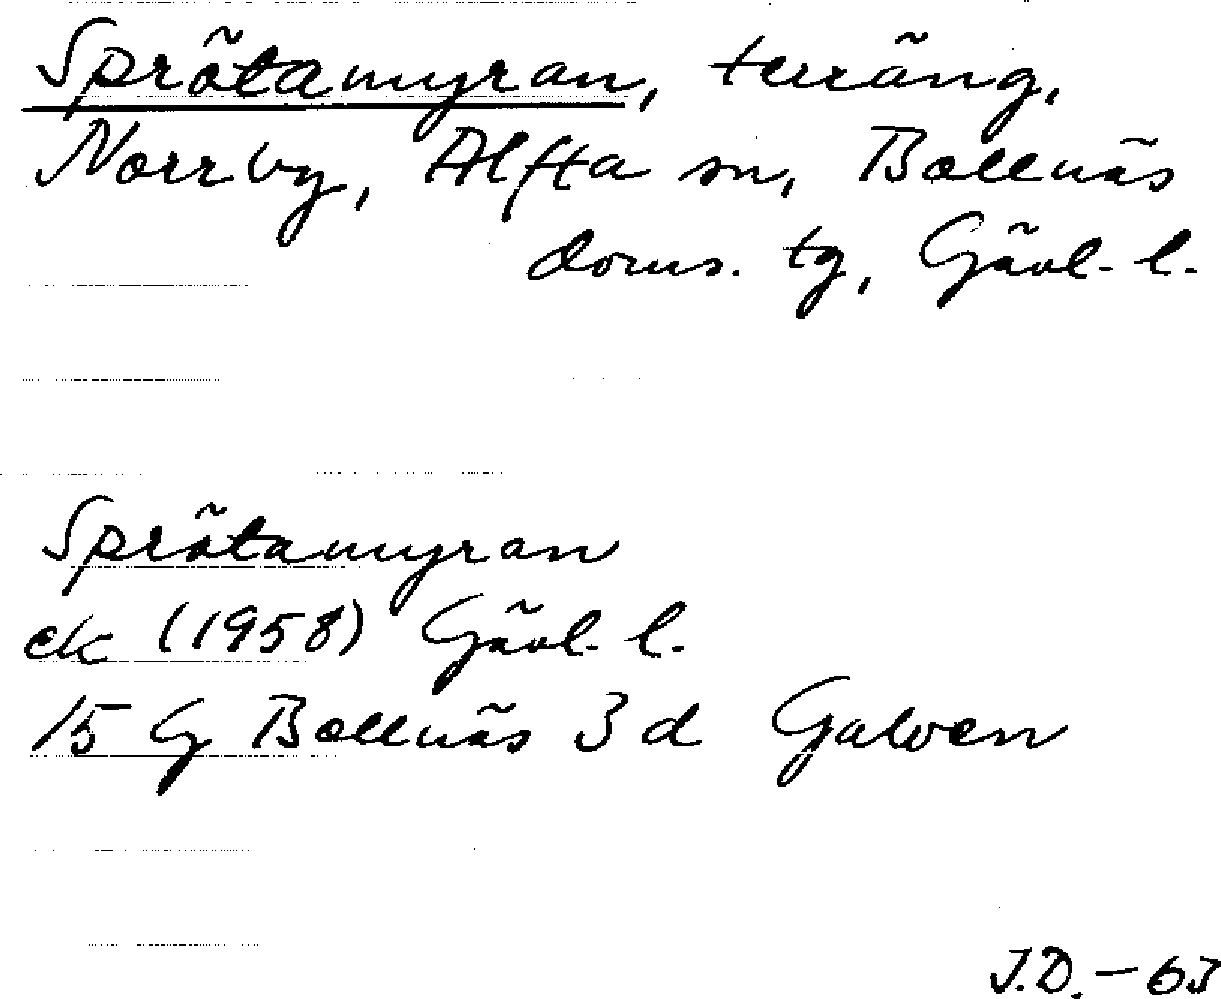 Sprötamyran, terräng,
Norrby, Alfta sn, Bollnäs
doms. tg, Gävl. l.
Sprötamyran
ek (1958) Gävl. l.
15 G Bollnäs 3 d Galven
J.D. – 63